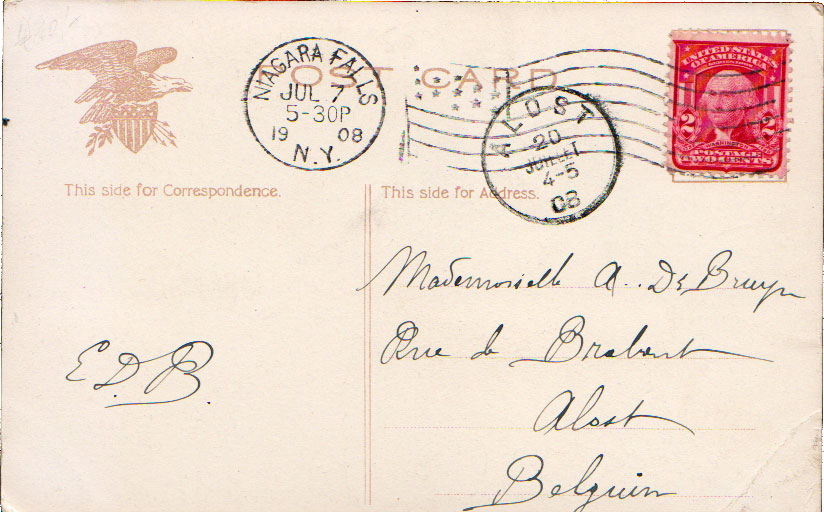 POST CARD
NIAGARA FALLS
JUL 7
5-30P
19 08
N.Y.
ALOST
20
JUILLET
4-5
08
UNITED STATES
OF AMERICA
2 2
WASHINGTON
POSTAGE
TWO CENTS
This side for Correspondence.
This side for Address.
E.D.B.
Mademoiselle A. De Bruyn
Rue de Brabant
Alost
Belgium